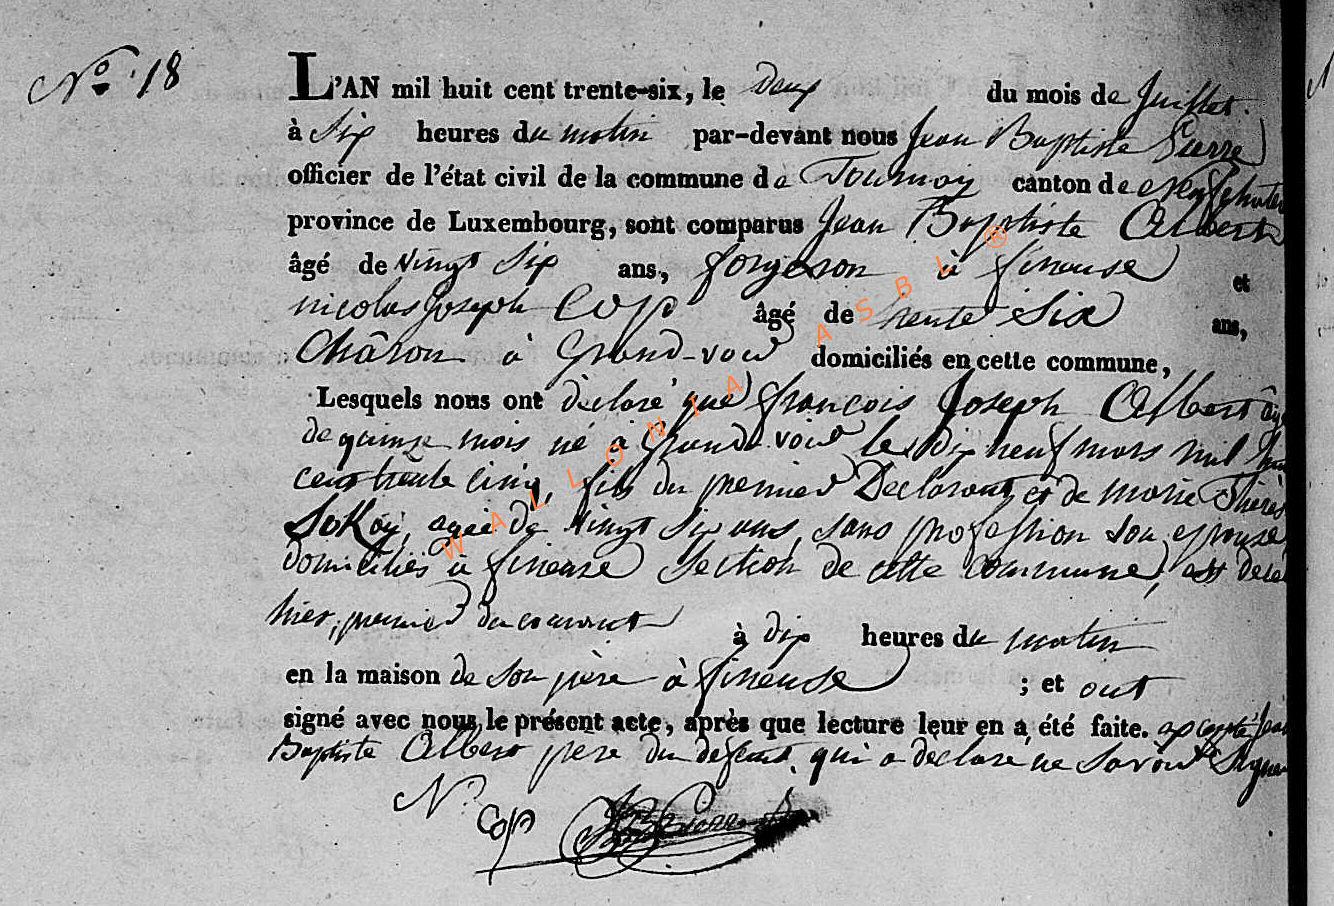 No. 18
L'AN mil huit cent trente-six, le Deux du mois de Juillet.
à Six heures du matin par-devant nous Jean Baptiste Pierre
officier de l'état civil de la commune de Tournay canton de Neufchateau
province de Luxembourg, sont comparus Jean Baptiste Albert
âgé de Vingt Six ans, forgeron à fineuse et
nicolas Joseph Cop âgé de trente Six ans,
Châron à Grand-voir domiciliés en cette commune,
Lesquels nous ont déclaré que françois Joseph Albert âgé
de quinze mois né à Grand-voir le Dix neuf mars mil huit
cent trente Cinq, fils du premier Declarant et de marie Thérèse
agée de Vingt Six ans, sans profession son epouse,
domiciliés à fineuse Section de cette Commune, est décédé
hier, premier du courant à dix heures du matin
en la maison de son père à fineuse ; et ont
signé avec nous le présent acte, après que lecture leur en a été faite. excepté Jean
Baptiste Albert père du défunt, qui a declaré ne Savoir Signer
N. Cop
WALLONIA ASBL ®